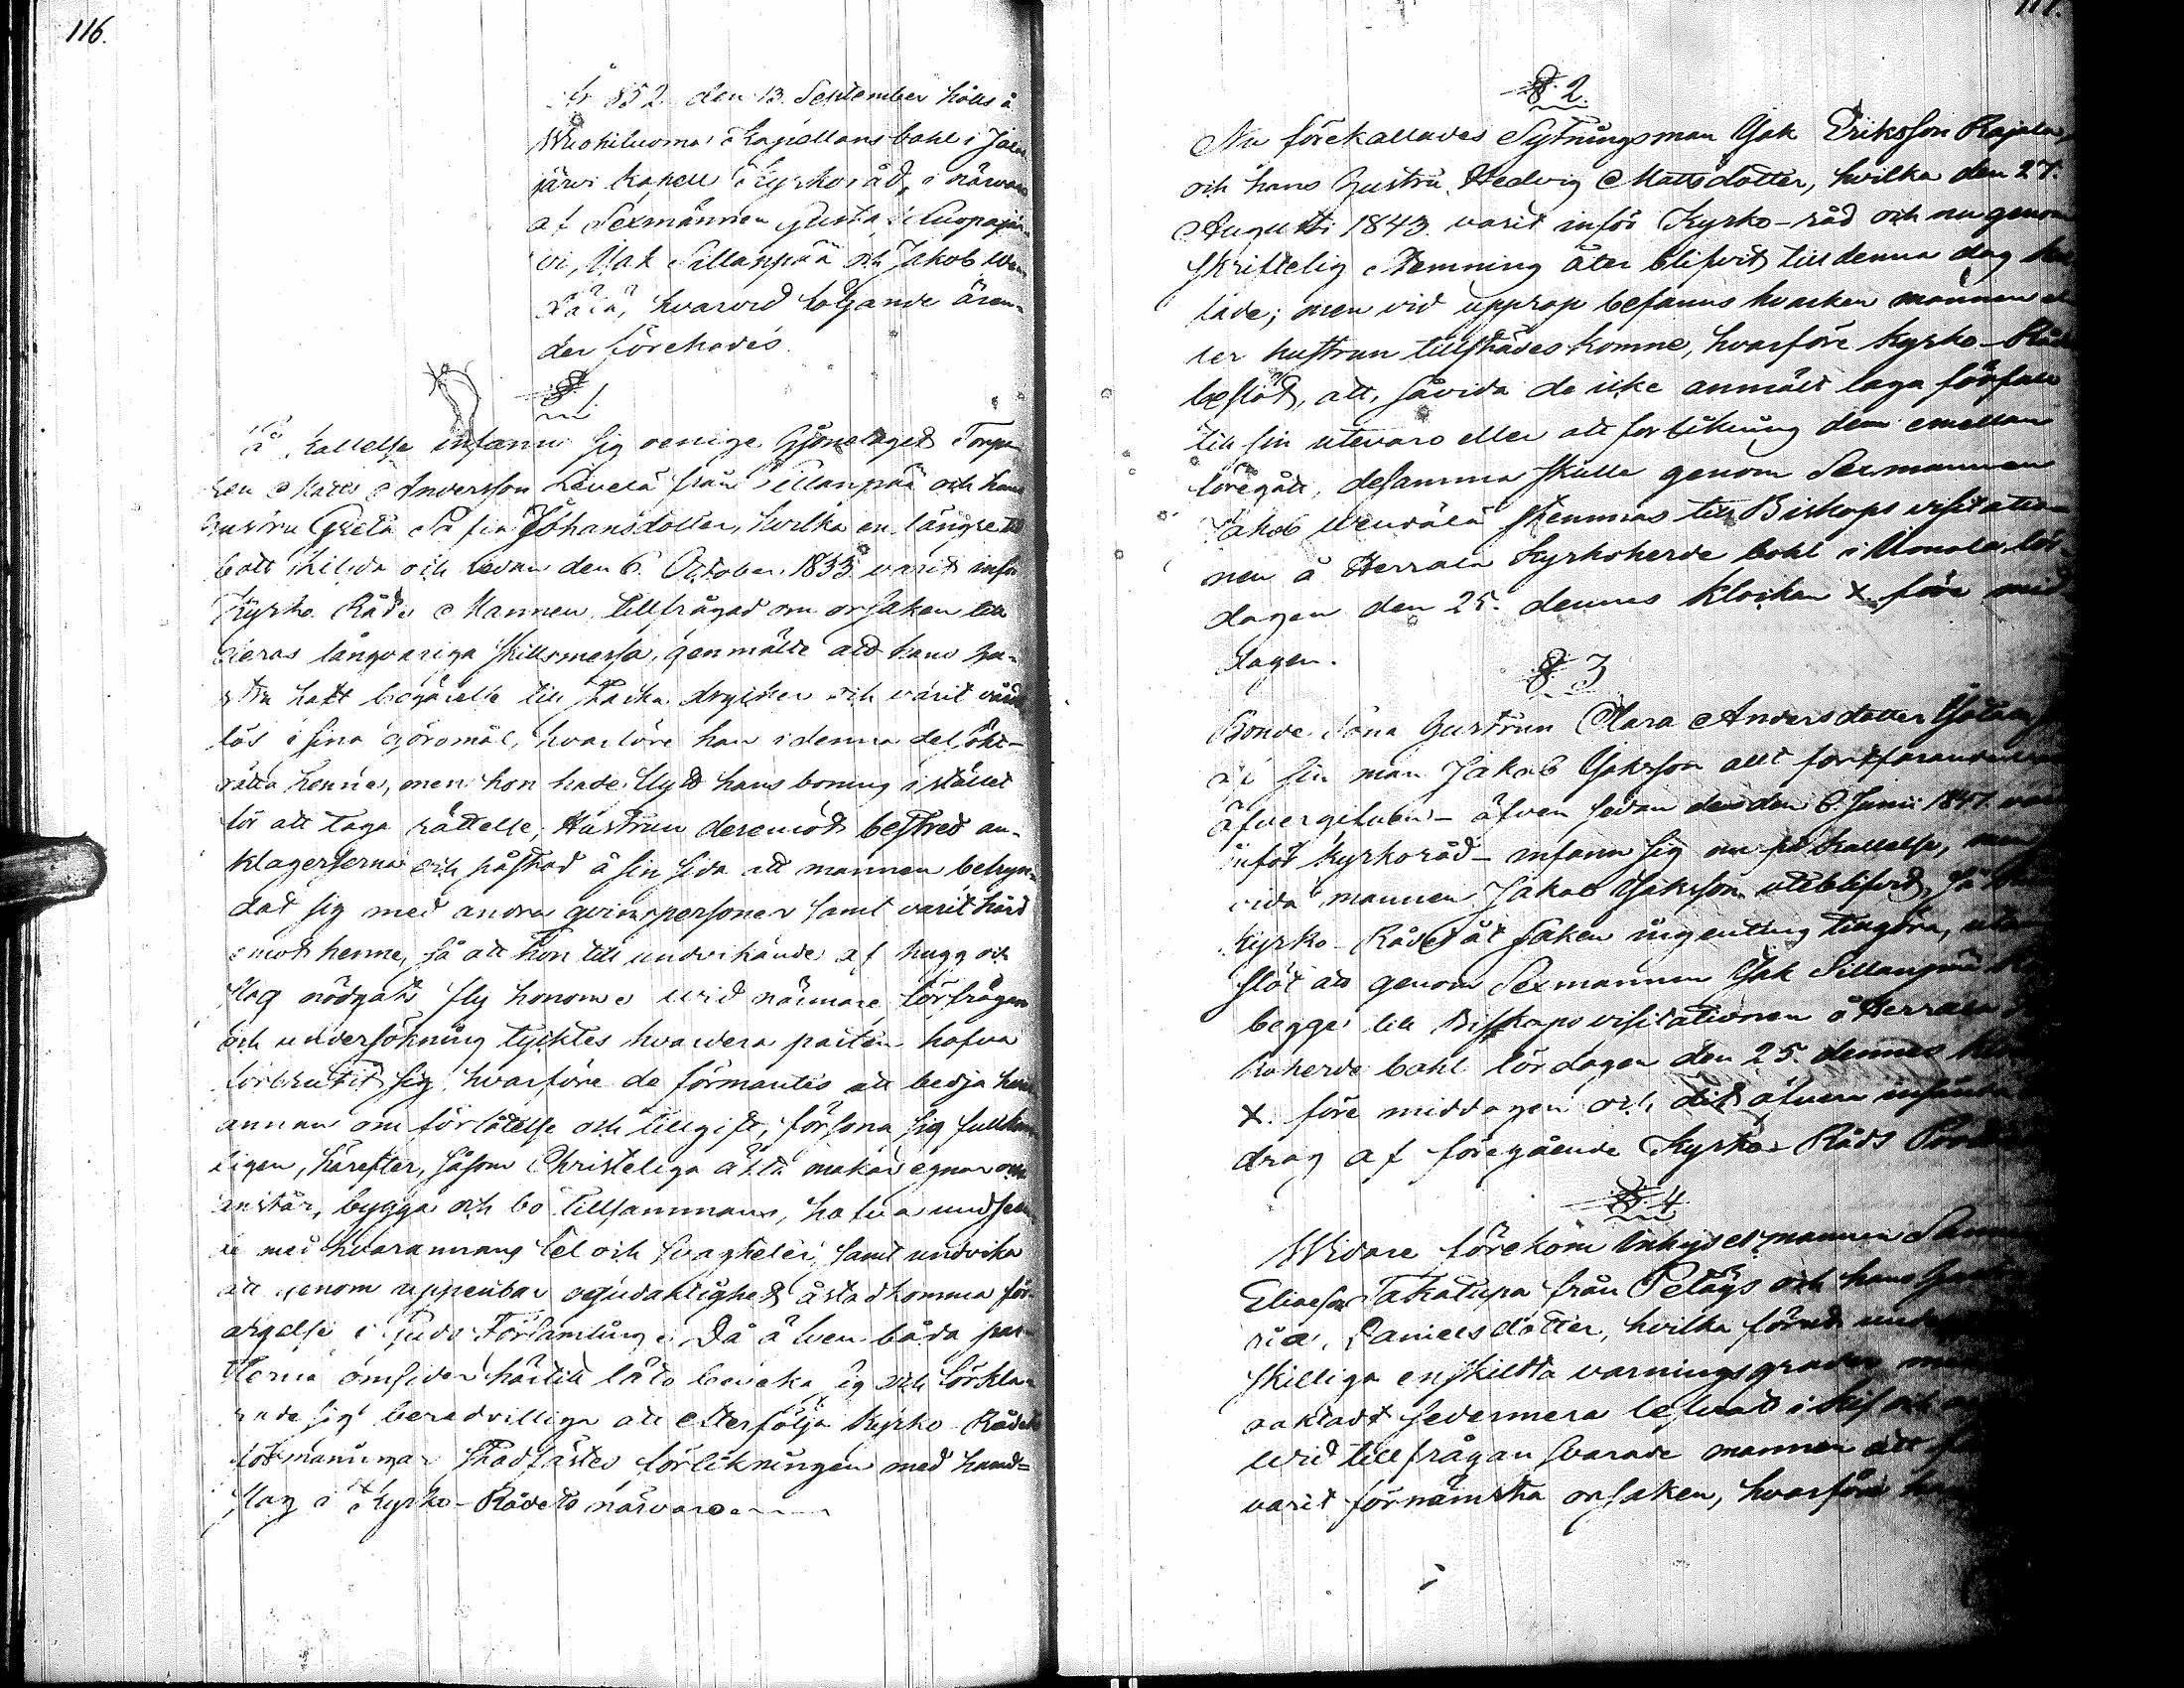 116.
År 1852 den 13. September hölls å
Wuohiluoma Kapellans bohl i Jala-
järvi kapell Kyrkoråd, i närvaro
af Sexmännen Gustaf Luopajär-
vi, Isak Sillanpää och Jakob
hvarvid följande ären-
der förehades.
§ 1.
På kallelse infann sig oenige Hjonelaget Torpa-
ren Matts Andersson från Sillanpää och hans
hustru Greta Johansdotter, hvilka en längre tid
bott skilda och redan den 6. October 1833 varit inför
Kyrko Råd. Mannen tillfrågad om orsaken till
deras långvariga skillsmessa, genmälte att hans hu-
stru haft begärelse till starka drycker och varit vård-
lös i sina göromål, hvarföre han i denna del sökt
rätta henne, men hon hade flytt hans boning i stället
för att taga rättelse; Hustrun deremot bestred an-
klagelserna och påstod å sin sida att mannen
sig med andra qvinspersoner samt varit hård
emot henne, så att hon till undvikande af hugg och
slag nödgats fly honom. Wid närmare förfrågan
och undersökning tycktes hvardera parten hafva
förbrutit sig hvarföre de förmantes att bedja hvar-
annan om förlåtelse och tillgift, försona sig fullkom-
ligen, härefter, såsom Christeliga äkta makar egnar och
anstår, bygga och bo tillsammans, hafva undseen-
de med hvarannans fel och svagheter, samt undvika
att genom uppenbar ogudaktighet åstadkomma för-
argelse i Guds Församling. Då äfven båda par-
terna omsider härtill läto beveka sig och förkla-
rade sig beredvilliga att efterfölja Kyrko Rådets
förmaningar stadfästes förlikningen med hand-
slag i Kyrko-Rådets närvaro
117.
§ 2.
Nu förekallades Sytningsman Isak Eriksson Rajala,
och hans hustru Hedvig Mattsdotter, hvilka den 27.
Augusti 1843 varit inför Kyrko-råd och nu genom
skriftelig stemning åter blifvit till denna dag kal-
lade; men vid upprop befanns hvarken mannen el-
ler hustrun tillstädes komne, hvarföre Kyrko-Rådet
beslöt, att, såvida de icke anmält laga förfall
till sin utevaro eller att förlikning dem emellan
föregått, desamma skulle genom Sexmannen
Jakob stemmas till Biskops visitatio-
nen å Herrala Kyrkoherde bohl i Ilmola lör-
dagen den 25. dennes klockan X före mid-
dagen.
§ 3
Bonde Sona hustrun Clara Andersdotter
af sin man Jakob Isaksson allt fortfarande
öfvergifven - äfven sedan de den 6. Junii 1847 varit
inför kyrkoråd - infann sig nu på kallelse, men
vida mannen Jakob Isaksson uteblifvit, så
Kyrko-Rådet åt saken ingenting tillgöra, utan
slöt att genom Sexmannen Isak Sillanpää
begge till Biskops visitationen å Herrala
koherde bohl lördagen den 25. dennes
X. före middagen och dit äfven insända
drag af föregående Kyrko-Råds
§ 4
Widare förekom Inhysesmannen
Eliasson Takalupa från Peltoys och hans
ria Danielsdotter, hvilka förut
skilliga enskilda varningsgrader
aktadt sedermera lefvat i kif och
wid tillfrågan svarade mannen att
varit förnämsta orsaken, hvarföre